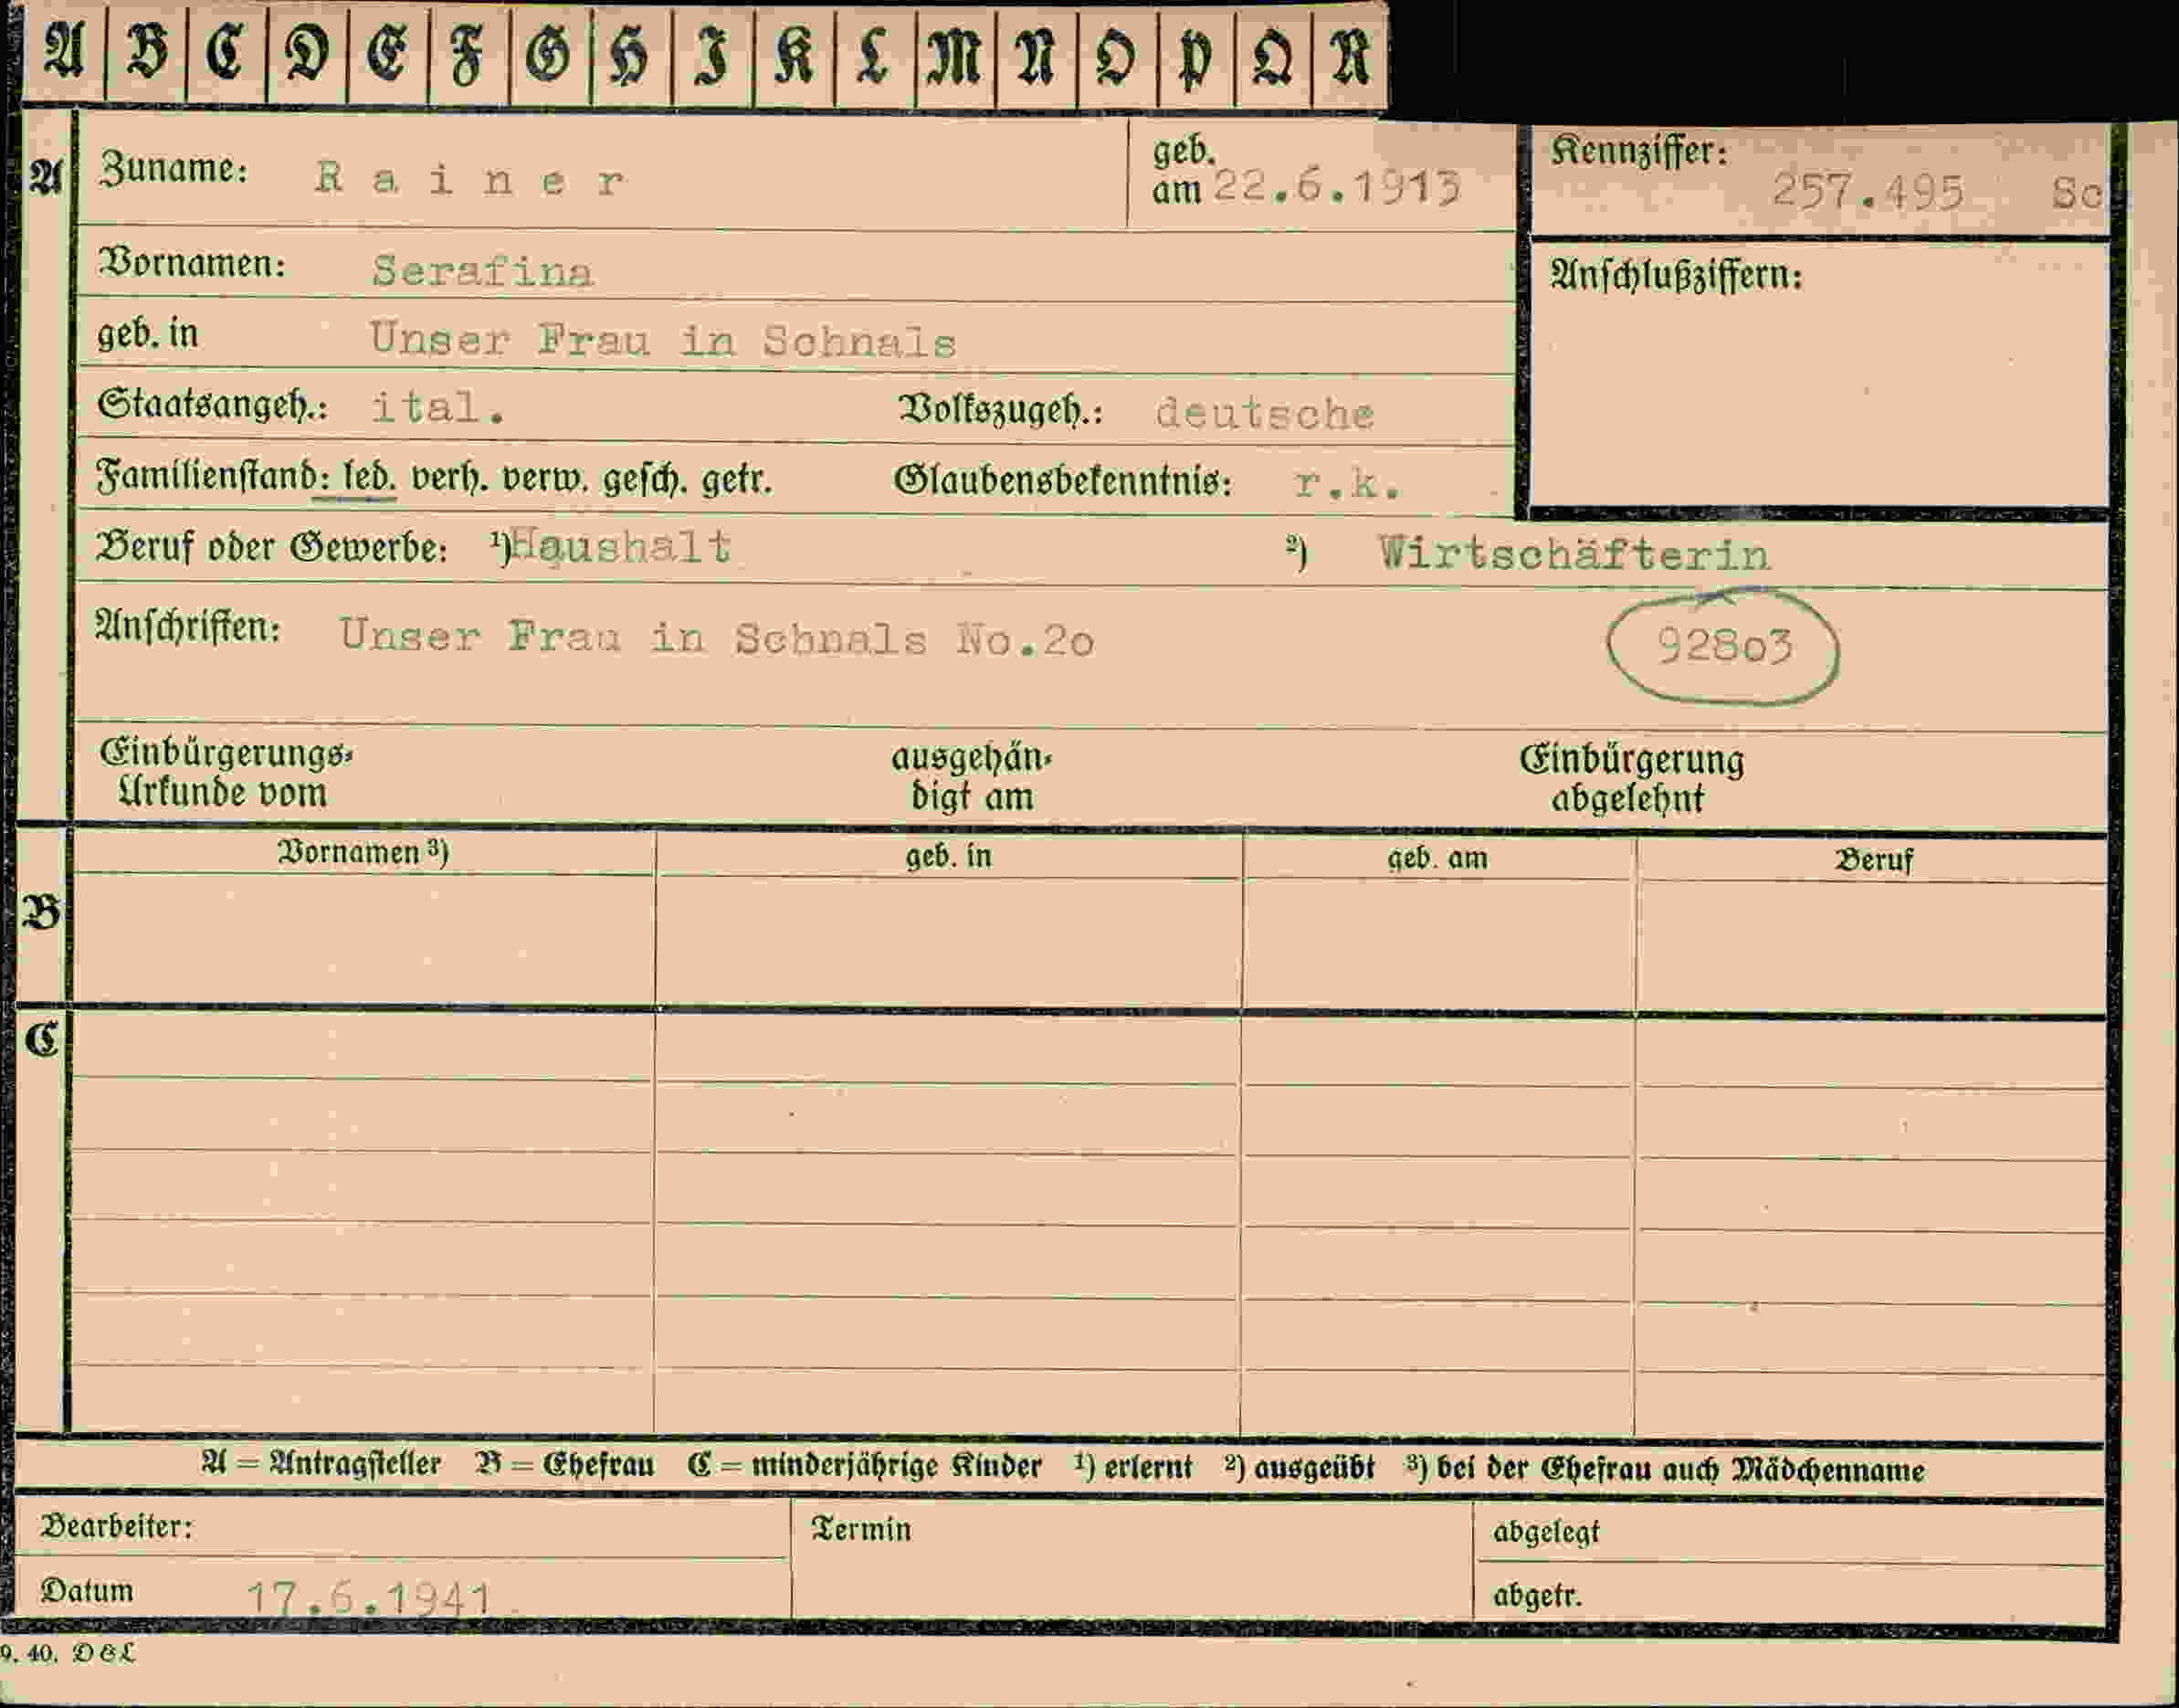 A B C D E F G H I K L M N O P Q R
A Zuname: Rainer geb. am 22.6.1913 Kennziffer: 257.495 Sc
Vornamen: Serafina Anschlußziffern:
geb. in Unser Frau in Schnals
Staatsangeh.: ital. Volkszugeh.: deutsche
Familienstand: led. verh. verw. gesch. getr. Glaubensbekenntnis: r.k.
Beruf oder Gewerbe: ¹) Haushalt ²) Wirtschäfterin
Anschriften: Unser Frau in Schnals No.2o 928o3
Einbürgerungs- ausgehän- Einbürgerung
Urkunde vom digt am abgelehnt
Vornamen ³) geb. in geb. am Beruf
B
C
A = Antragsteller B = Ehefrau C = minderjährige Kinder ¹) erlernt ²) ausgeübt ³) bei der Ehefrau auch Mädchenname
Bearbeiter: Termin abgelegt
Datum 17.6.1941 abgetr.
9. 40. D&L